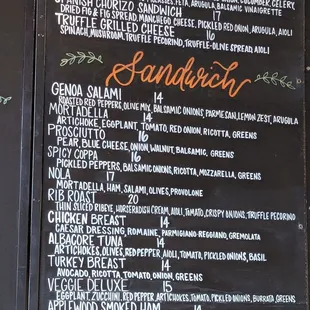 CELERY,
FETA, ARUGULA, BALSAMIC VINAIGRETTE
SPANISH CHORIZO SANDWICH
DRIED FIG & FIG SPREAD, MANCHEGO CHEESE, PICKLED RED ONION, ARUGULA, AIOLI
TRUFFLE GRILLED CHEESE 16
SPINACH, MUSHROOM, TRUFFLE PECORINO, TRUFFLE-OLIVE SPREAD AIOLI
Sandwich
GENOA SALAMI 14
ROASTED RED PEPPERS, OLIVE MIX, BALSAMIC ONIONS, PARMESAN, LEMON ZEST, ARUGULA
MORTADELLA 14
ARTICHOKE, EGGPLANT, TOMATO, RED ONION, RICOTTA, GREENS
PROSCIUTTO 16
PEAR, BLUE CHEESE, ONION, WALNUT, BALSAMIC, GREENS
SPICY COPPA 16
PICKLED PEPPERS, BALSAMIC ONIONS, RICOTTA, MOZZARELLA, GREENS
NOLA 17
MORTADELLA, HAM, SALAMI, OLIVES, PROVOLONE
RIB ROAST 20
THIN SLICED RIBEYE, HORSERADISH CREAM, AIOLI, TOMATO, CRISPY ONIONS, TRUFFLE PECORINO
CHICKEN BREAST 14
CAESAR DRESSING, ROMAINE, PARMIGIANO-REGGIANO, GREMOLATA
ALBACORE TUNA 14
ARTICHOKES, OLIVES, RED PEPPER, AIOLI, TOMATO, PICKLED ONIONS, BASIL
TURKEY BREAST 14
AVOCADO, RICOTTA, TOMATO, ONION, GREENS
VEGGIE DELUXE 15
EGGPLANT, ZUCCHINI, RED PEPPER, ARTICHOKES, TOMATO, PICKLED ONIONS, BURRATA, GREENS
APPLEWOOD SMOKED HAM 14